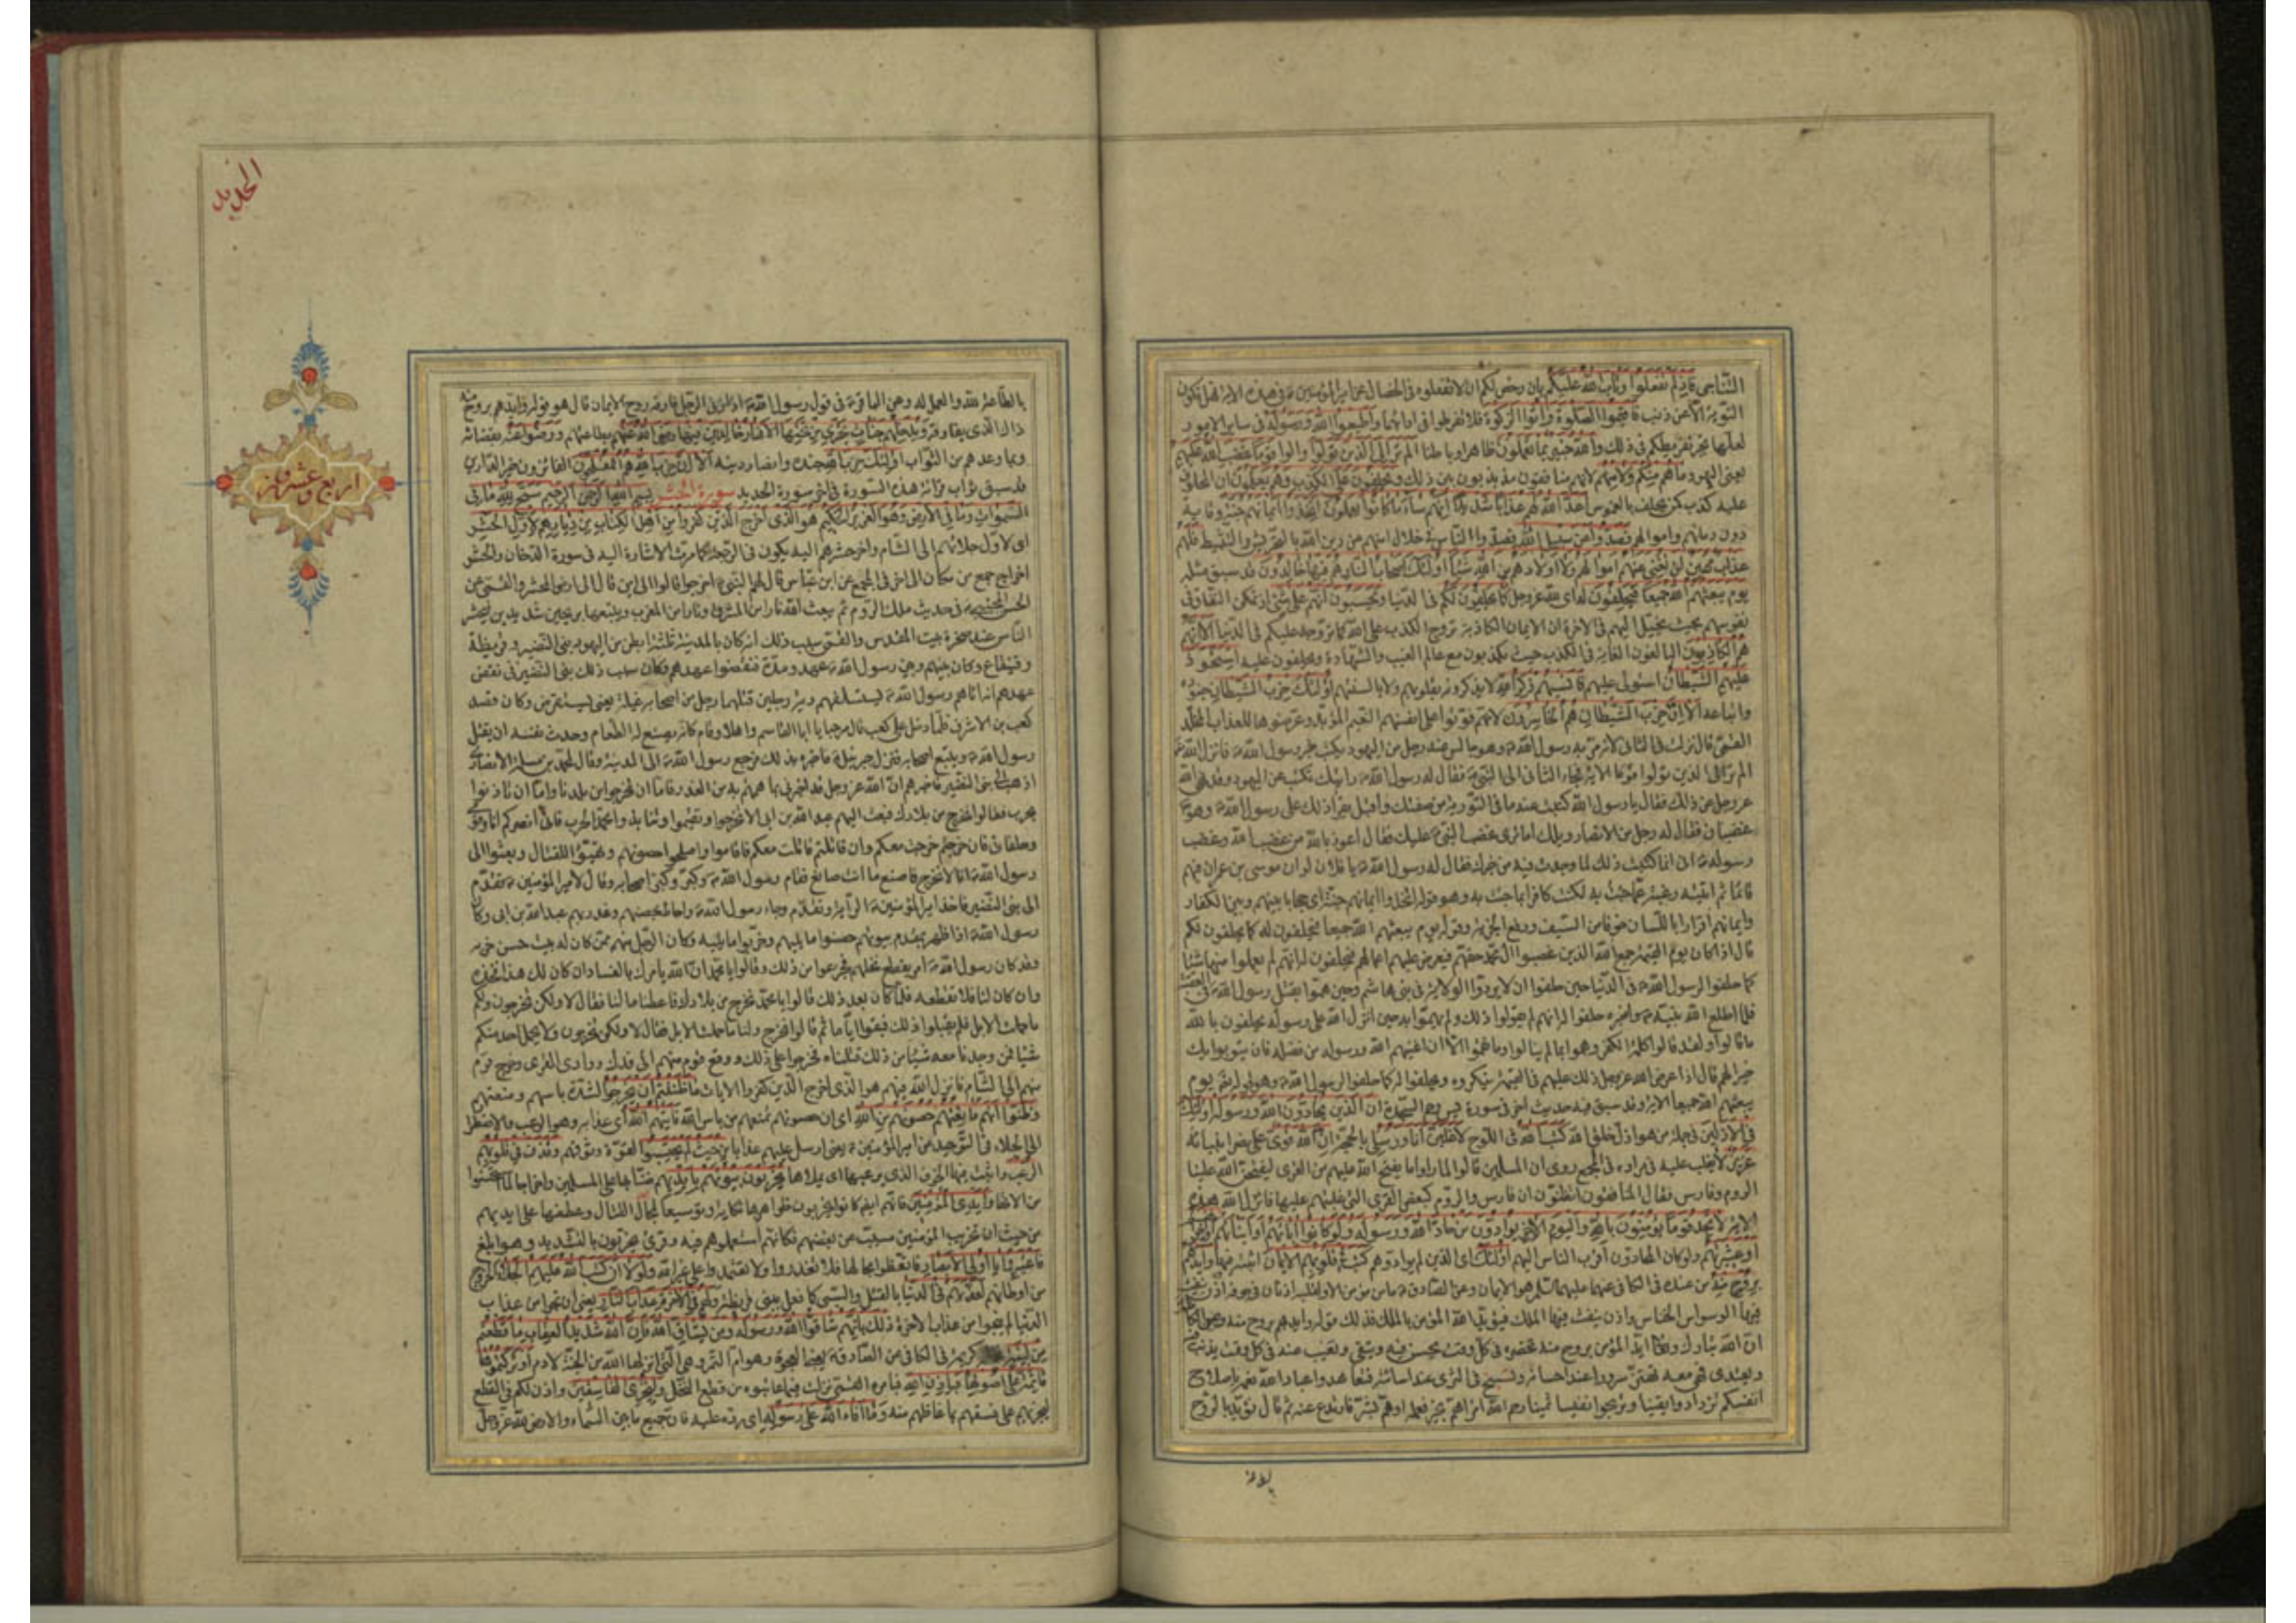 التناجى فاذ لم تفعلوا وتاب الله عليكم بان رخص لكم ان لا تفعلوه فى الخصال عن امير المؤمنين فى هذه الاية فهل تكون
التوبة الا عن ذنب فاقيموا الصلوة واتوا الزكوة فلا تفرطوا فى ادائهما واطيعوا الله ورسوله فى ساير الامور
لعلها تجبر تفريطكم فى ذلك والله خبير بما تعملون ظاهرا وباطنا الم تر الى الذين تولوا والوا قوما غضب الله عليهم
يعنى اليهود ما هم منكم ولا منهم لانهم منافقون مذبذبون بين ذلك ويحلفون على الكذب وهم يعلمون ان المحلوف
عليه كذب كمن يحلف بالغموس اعد الله لهم عذابا شديدا انهم ساء ما كانوا يعملون اتخذوا ايمانهم جنة وقاية
دون دمائهم واموالهم فصدوا عن سبيل الله فصدوا الناس فى خلال امنهم عن دين الله بالتحريش والتثبيط فلهم
عذاب مهين لن تغنى عنهم اموالهم ولا اولادهم من الله شيئا اولئك اصحاب النار هم فيها خالدون قد سبق مثله
يوم يبعثهم الله جميعا فيحلفون له اى لله عز وجل كما يحلفون لكم فى الدنيا ويحسبون انهم على شئ اذ تمكن النفاق فى
نفوسهم بحيث يخيل اليهم فى الاخرة ان الايمان الكاذبة تروج الكذب على الله كما تروجه عليكم فى الدنيا الا انهم
هم الكاذبون البالغون الغاية فى الكذب حيث يكذبون مع عالم الغيب والشهادة ويحلفون عليه استحوذ
عليهم الشيطان استولى عليهم فانسيهم ذكر الله لا يذكرونه بقلوبهم ولا بالسنتهم اولئك حزب الشيطان جنوده
واتباعه الا ان حزب الشيطان هم الخاسرون لانهم فوتوا على انفسهم النعيم المؤبد وعرضوها للعذاب المخلد
القمى قال نزلت فى الثانى لانه مر به رسول الله وهو جالس عند رجل من اليهود يكتب خبر رسول الله فانزل الله
الم تر الى الذين تولوا قوما الاية فجاء الثانى الى النبى فقال له رسول الله رايتك تكتب عن اليهود وقد نهى الله
عز وجل عن ذلك فقال يا رسول الله كتبت عنه ما فى التورية من صفتك واقبل يقرا ذلك على رسول الله وهو
غضبان فقال له رجل من الانصار ويلك اما ترى غضب النبى عليك فقال اعوذ بالله من غضب الله وغضب
رسوله انى انما كتبت ذلك لما وجدت فيه من خبرك فقال له رسول الله يا فلان لو ان موسى بن عمران فيهم
قائما ثم اتيته رغبة عما جئت به لكنت كافرا بما جئت به وهو قوله اتخذوا ايمانهم جنة اى حجابا بينهم وبين الكفار
وايمانهم اقرارا باللسان خوفا من السيف ورفع الجزية وقوله يوم يبعثهم الله جميعا فيحلفون له كما يحلفون لكم
قال اذا كان يوم القيمة جمع الله الذين غصبوا آل محمد حقهم فيعرض عليهم اعمالهم فيحلفون له انهم لم يعملوا منها شيئا
كما حلفوا لرسول الله فى الدنيا حين حلفوا ان لا يردوا الولاية فى بنى هاشم وحين هموا بقتل رسول الله فى العقبة
فلما اطلع الله نبيه واخبره حلفوا له انهم لم يقولوا ذلك ولم يهموا به حين انزل الله على رسوله يحلفون بالله
ما قالوا ولقد قالوا كلمة الكفر وهموا بما لم ينالوا وما نقموا الا ان اغنيهم الله ورسوله من فضله فان يتوبوا يك
خيرا لهم قال اذا عرض الله عز وجل ذلك عليهم فى القيمة ينكروه ويحلفوا له كما حلفوا لرسول الله وهو قوله يوم
يبعثهم الله جميعا الاية وقد سبق فيه حديث اخر فى سورة السجدة ان الذين يحادون الله ورسوله اولئك
فى الاذلين فى جملة من هو اذل خلق الله كتب الله فى اللوح لاغلبن انا ورسلى بالحجة ان الله قوى على نصر انبيائه
عزيز لا يغلب عليه فى مراده فى المجمع روى ان المسلمين قالوا لما راوا ما يفتح الله عليهم من القرى ليفتحن الله علينا
الروم وفارس فقال المنافقون اتظنون ان فارس والروم كبعض القرى التى غلبتم عليها فانزل الله هذه
الاية لا تجد قوما يؤمنون بالله واليوم الاخر يوادون من حاد الله ورسوله ولو كانوا اباءهم او ابناءهم او اخوانهم
او عشيرتهم ولو كان المحادون اقرب الناس اليهم اولئك اى الذين لم يوادوهم كتب فى قلوبهم الايمان اثبته فيها وايدهم
بروح منه من عنده فى الكافى عنهما عليهما السلم هو الايمان وعن الصادق ما من مؤمن الا ولقلبه اذنان فى جوفه اذن ينفث
فيها الوسواس الخناس واذن ينفث فيها الملك فيؤيد الله المؤمن بالملك فذلك قوله وايدهم بروح منه وعن الكاظم
ان الله تبارك وتعالى ايد المؤمن بروح منه تحضره فى كل وقت يحسن فيه ويتقى وتغيب عنه فى كل وقت يذنب فيه
ويعتدى فهى معه تهتز سرورا عند احسانه وتسيخ فى الثرى عند اسائته فتعاهدوا عباد الله نعمه باصلاح
انفسكم تزدادوا يقينا وتربحوا نفيسا ثمينا رحم الله امرا هم بخير فعمله او هم بشر فارتدع عنه ثم قال نؤيد بالروح
الحديد
اربع وعشرون
بالطاعة لله والعمل له وعن الباقر فى قول رسول الله اذا زنى الرجل فارقه روح الايمان قال هو قوله وايدهم بروح منه
ذاك الذى يفارقه ويدخلهم جنات تجرى من تحتها الانهار خالدين فيها رضى الله عنهم بطاعتهم ورضوا عنه بقضائه
وبما وعدهم من الثواب اولئك حزب الله جنده وانصار دينه الا ان حزب الله هم المفلحون الفائزون بخير الدارين
قد سبق ثواب قرائة هذه السورة فى اخر سورة الحديد سورة الحشر بسم الله الرحمن الرحيم سبح لله ما فى
السموات وما فى الارض وهو العزيز الحكيم هو الذى اخرج الذين كفروا من اهل الكتاب من ديارهم لاول الحشر
اى لاول جلائهم الى الشام واخر حشرهم اليه يكون فى الرجعة كما مرت الاشارة اليه فى سورة الدخان والحشر
اخراج جمع من مكان الى اخر فى المجمع عن ابن عباس قال لهم النبى اخرجوا قالوا الى اين قال الى ارض المحشر والقمى عن
الحسن المجتبى فى حديث ملك الروم ثم يبعث الله نارا من المشرق ونارا من المغرب ويتبعهما بريحين شديدين فيحشر
الناس عند صخرة بيت المقدس والقمى سبب ذلك انه كان بالمدينة ثلثة ابطن من اليهود بنى النضير وقريظة
وقينقاع وكان بينهم وبين رسول الله عهد ومدة فنقضوا عهدهم وكان سبب ذلك بنى النضير فى نقض
عهدهم انه اتاهم رسول الله ليستسلفهم دية رجلين قتلهما رجل من اصحابه غيلة يعنى ليستقرض وكان قصد
كعب بن الاشرف فلما دخل على كعب قال مرحبا يا ابا القاسم واهلا وقام كانه يصنع له الطعام وحدث نفسه ان يقتل
رسول الله ويتبع اصحابه فنزل جبرئيل فاخبره بذلك فرجع رسول الله الى المدينة وقال لمحمد بن مسلمة الانصارى
اذهب الى بنى النضير فاخبرهم ان الله عز وجل قد اخبرنى بما هممتم به من الغدر فاما ان تخرجوا من بلدنا واما ان تاذنوا
بحرب فقالوا نخرج من بلادك فبعث اليهم عبد الله بن ابى الا تخرجوا وتقيموا وتنابذوا محمدا الحرب فانى انصركم انا وقومى
وحلفائى فان خرجتم خرجت معكم وان قاتلتم قاتلت معكم فاقاموا واصلحوا حصونهم وتهيئوا للقتال وبعثوا الى
رسول الله انا لا نخرج فاصنع ما انت صانع فقام رسول الله وكبر وكبر اصحابه وقال لامير المؤمنين تقدم
الى بنى النضير فاخذ امير المؤمنين الراية وتقدم وجاء رسول الله واحاط بحصنهم وغدر بهم عبد الله بن ابى وكان
رسول الله اذا ظهر بمقدم بيوتهم حصنوا ما يليهم وخربوا ما يليه وكان الرجل منهم ممن كان له بيت حسن خربه
وقد كان رسول الله امر بقطع نخلهم فجزعوا من ذلك وقالوا يا محمد ان الله يامرك بالفساد ان كان لك هذا فخذه
وان كان لنا فلا تقطعه فلما كان بعد ذلك قالوا يا محمد نخرج من بلادك فاعطنا مالنا فقال لا ولكن تخرجون ولكم
ما حملت الابل فلم يقبلوا ذلك فبقوا اياما ثم قالوا نخرج ولنا ما حملت الابل فقال لا ولكن تخرجون ولا يحمل احد منكم
شيئا فمن وجدنا معه شيئا من ذلك قتلناه فخرجوا على ذلك ووقع قوم منهم الى فدك ووادى القرى وخرج قوم
منهم الى الشام فانزل الله فيهم هو الذى اخرج الذين كفروا الايات ما ظننتم ان يخرجوا لشدة باسهم ومنعتهم
وظنوا انهم مانعتهم حصونهم من الله اى ان حصونهم تمنعهم من باس الله فاتيهم الله اى عذابه وهو الرعب والاضطرار
الى الجلاء فى التوحيد عن امير المؤمنين يعنى ارسل عليهم عذابا من حيث لم يحتسبوا لقوة وثوقهم وقذف فى قلوبهم
الرعب واثبت فيها الخوف الذى يرعبها اى يملاها يخربون بيوتهم بايديهم ضنا بها على المسلمين واخراجا لما استحسنوا
من الاتها وايدى المؤمنين فانهم ايضا كانوا يخربون ظواهرها نكاية وتوسيعا لمجال القتال وعطفها على ايديهم
من حيث ان تخريب المؤمنين مسبب عن نقضهم فكانهم استعملوهم فيه وقرئ يخربون بالتشديد وهو ابلغ
فاعتبروا يا اولى الابصار فاتعظوا بحالهم فلا تغدروا ولا تعتمدوا على غير الله ولولا ان كتب الله عليهم الجلاء الخروج
من اوطانهم لعذبهم فى الدنيا بالقتل والسبى كما فعل ببنى قريظة ولهم فى الاخرة عذاب النار يعنى ان نجوا من عذاب
الدنيا لم ينجوا من عذاب الاخرة ذلك بانهم شاقوا الله ورسوله ومن يشاق الله فان الله شديد العقاب ما قطعتم
من لينة كريمة فى الكافى عن الصادق يعنى العجوة وهى ام التمر وهى التى انزلها الله من الجنة لادم او تركتموها
قائمة على اصولها فباذن الله فبامره القمى نزلت فيما عاتبوه من قطع النخل وليخزى الفاسقين واذن لكم فى القطع
ليجزيهم على فسقهم بما غاظهم منه وما افاء الله على رسوله اى رده عليه فان جميع ما بين السماء والارض لله عز وجل